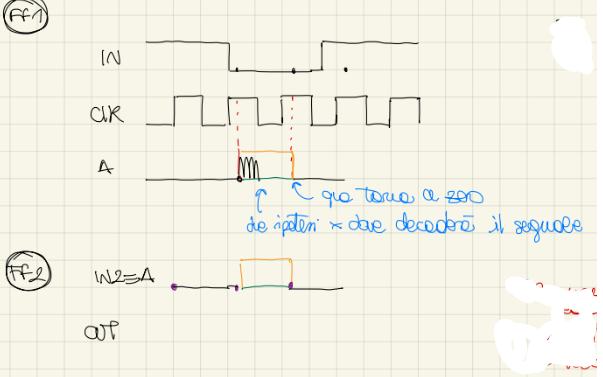 FF1
IN
CLK
A
qua torna a zero
due ipotesi x dove decaderà il segnale
FF2
IN2=A
OUT